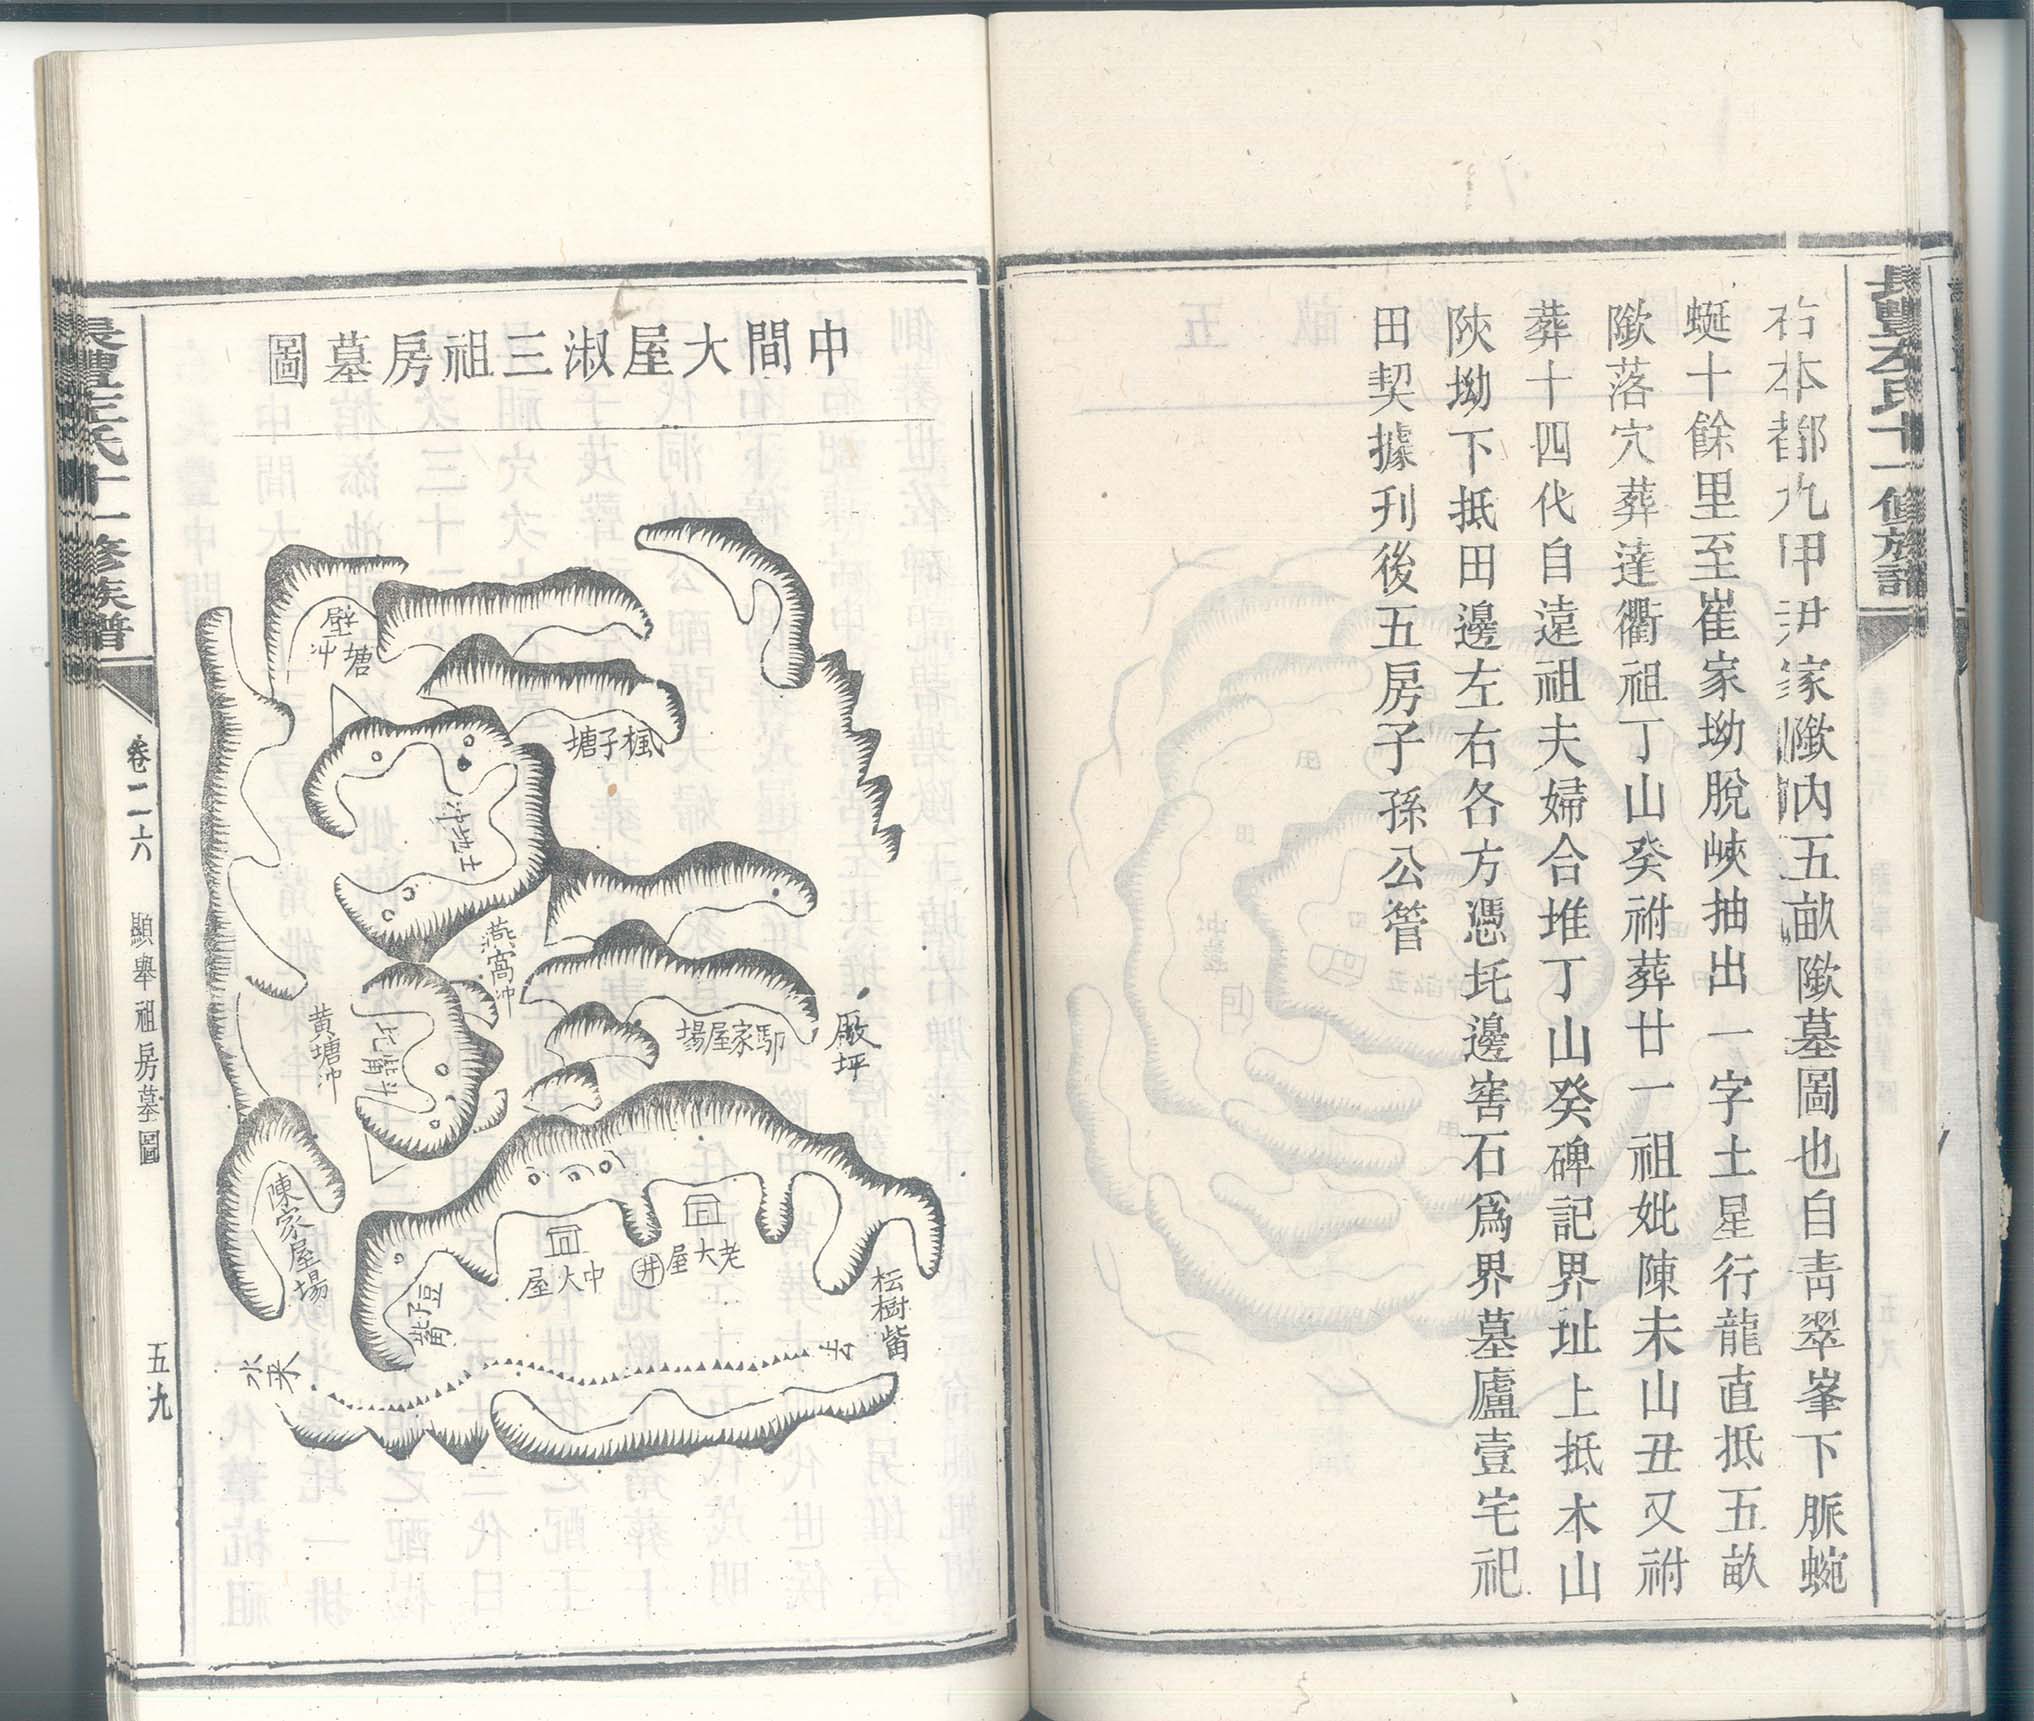 右本都九甲尹家隞內五畝隞墓圖也自靑翠峯下脈蜿
蜒十餘里至崔家坳脫峽抽出一字土星行龍直抵五畝
隞落穴葬達衢祖丁山癸祔葬廿一祖妣陳未山丑又祔
葬十四代自遠祖夫婦合堆丁山癸碑記界址上抵木山
陝坳下抵田邊左右各方憑圫邊窖石爲界墓廬壹宅祀
田契據刋後五房子孫公管
中間大屋淑三祖房墓圖
塘壁冲
楓子塘
燕窩冲
黃塘冲
廠坪
家屋場
陳家屋場
老大屋
井
中大屋
豆子
樹
水来
去
十一修族譜
卷二六
顯舉祖房墓圖
五九